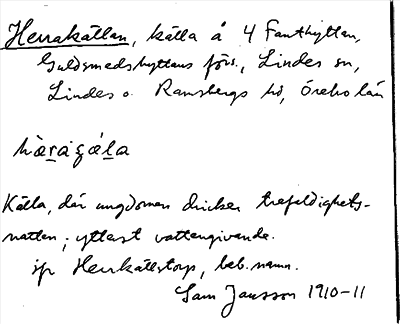 Herrakällan, källa å 4 Fanthyttan,
Guldsmedshyttans förs., Lindes sn,
Lindes o. Ramsbergs hd, Örebro län
hæ̀raçæ̀la
Källa, där ungdomen dricker trefaldighets-
natten; ytterst vattengivande.
jfr Herrkällstorp, beb.namn.
Sam Jansson 1910-11